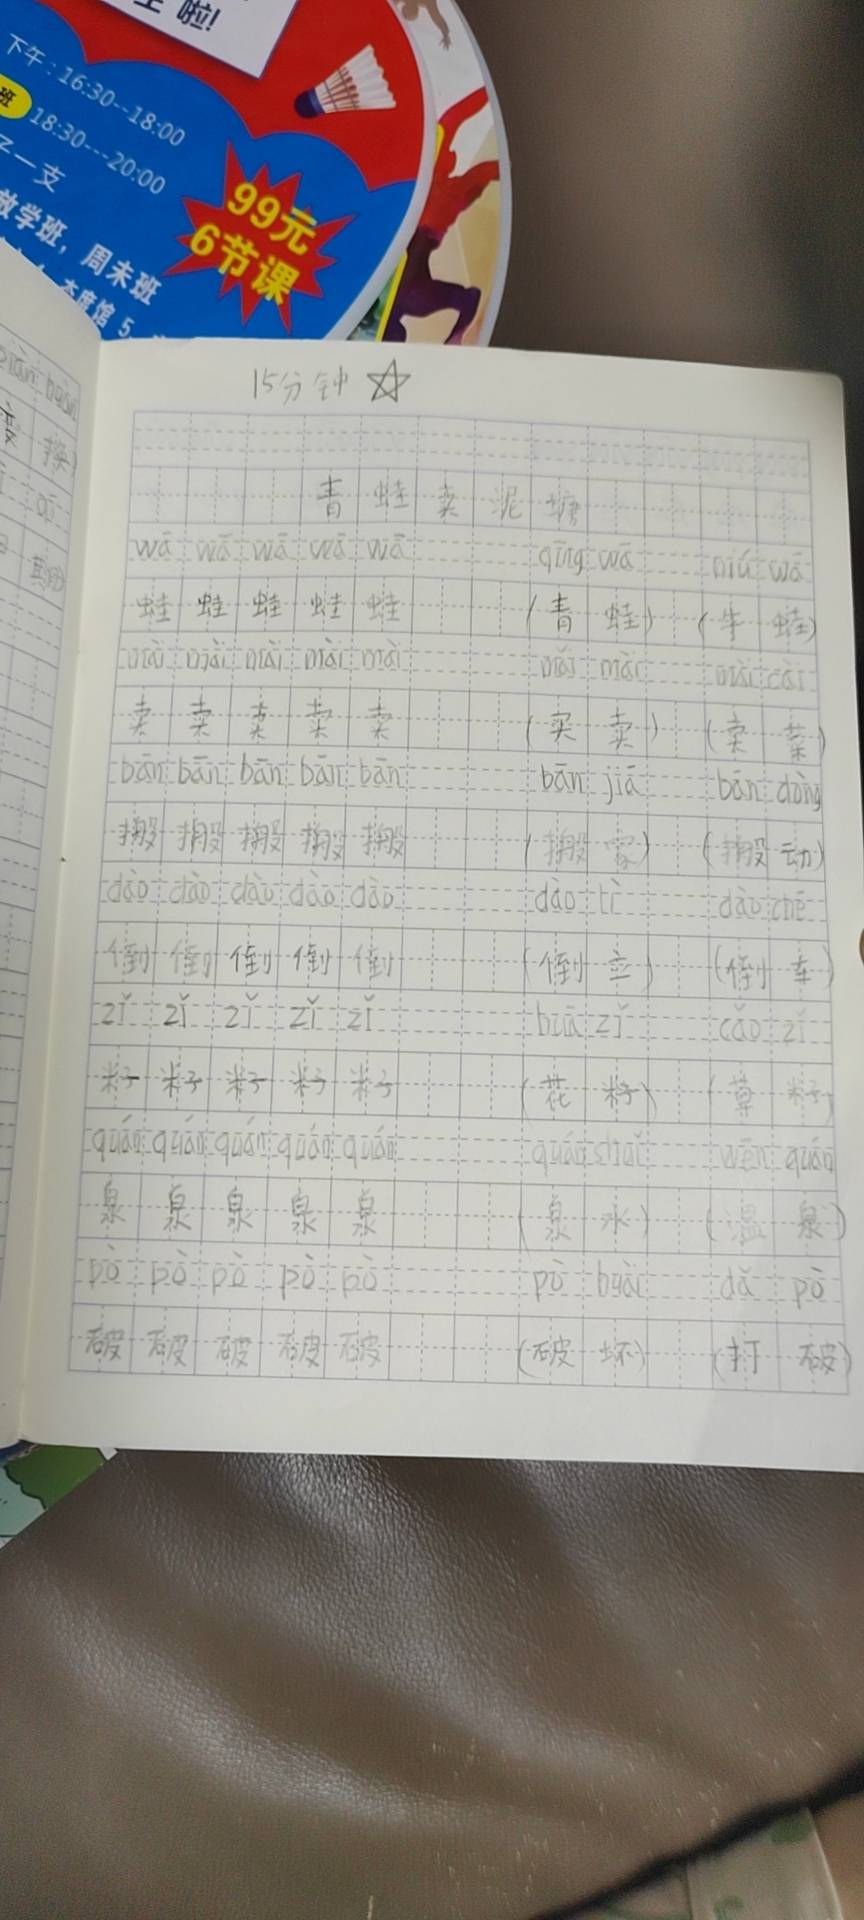 啦!
下午:16:30--18:00
班 18:30---20:00
一支
放学班,周末班
99元
6节课
馆 5
15分钟 ☆
换
青蛙卖泥塘
wā wā wā wā wā qīng wā niú wā
蛙 蛙 蛙 蛙 蛙 (青蛙) (牛蛙)
mài mài mài mài mài mǎi mài mài cài
卖 卖 卖 卖 卖 (买卖) (卖菜)
bān bān bān bān bān bān jiā bān dòng
搬 搬 搬 搬 搬 (搬家) (搬动)
dào dào dào dào dào dào lì dào chē
倒 倒 倒 倒 倒 (倒立) (倒车)
zǐ zǐ zǐ zǐ zǐ huā zǐ cǎo zǐ
籽 籽 籽 籽 籽 (花籽) (草籽)
quán quán quán quán quán quán shuǐ wēn quán
泉 泉 泉 泉 泉 (泉水) (温泉)
pò pò pò pò pò pò huài dǎ pò
破 破 破 破 破 (破坏) (打破)